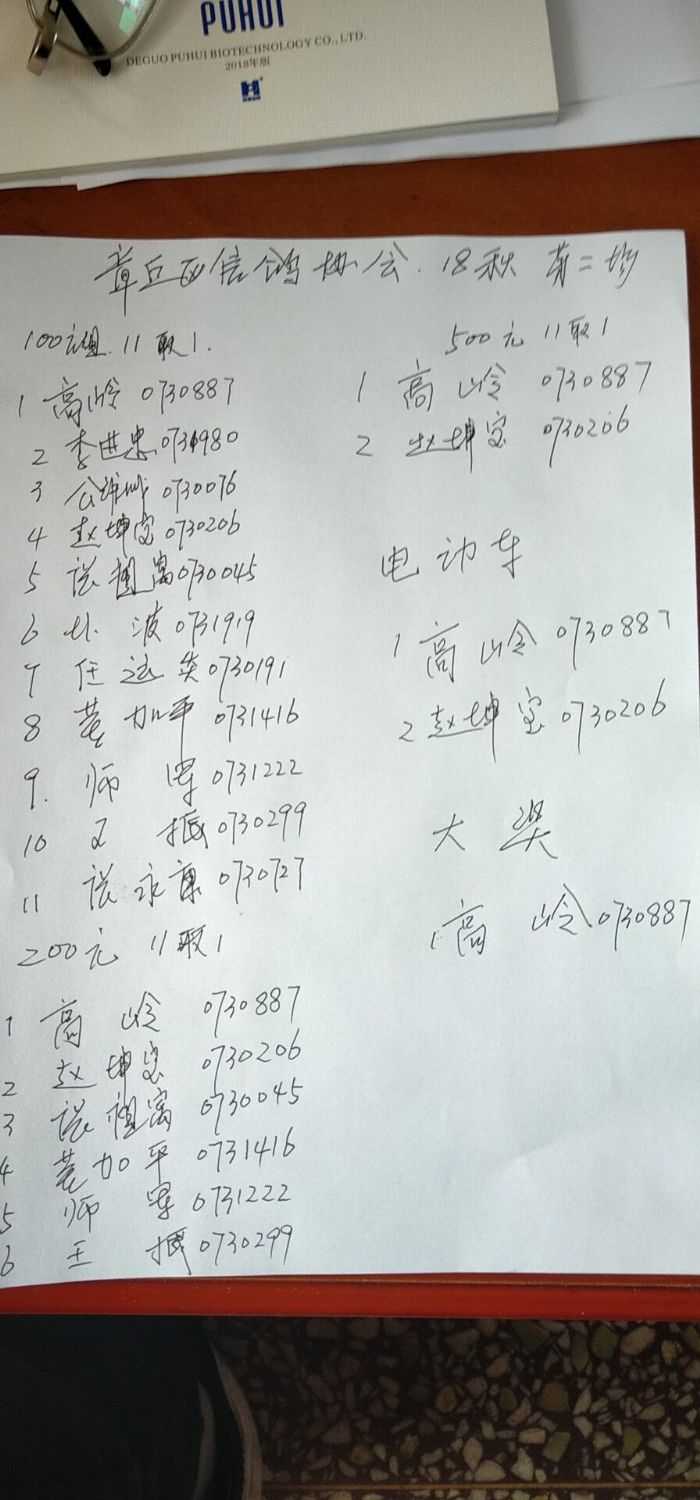 PUHUI
DEGUO PUHUI BIOTECHNOLOGY CO., LTD.
2018年版
章丘区信鸽协会.18秋 第二场
100元组.11取1.
1 高岭 0730887
2 李进忠 0731980
3 0730076
4 赵坤宝 0730206
5 张祖富 0730045
6 波 0731919
7 任 0730191
8 加平 0731416
9. 师军 0731222
10 王 0730299
11 张永康 0730727
200元 11取1
1 高岭 0730887
2 赵坤宝 0730206
3 张祖富 0730045
4 加平 0731416
5 师军 0731222
6 王 0730299
500元 11取1
1 高岭 0730887
2 赵坤宝 0730206
电动车
1 高岭 0730887
2 赵坤宝 0730206
大奖
1.高岭 0730887